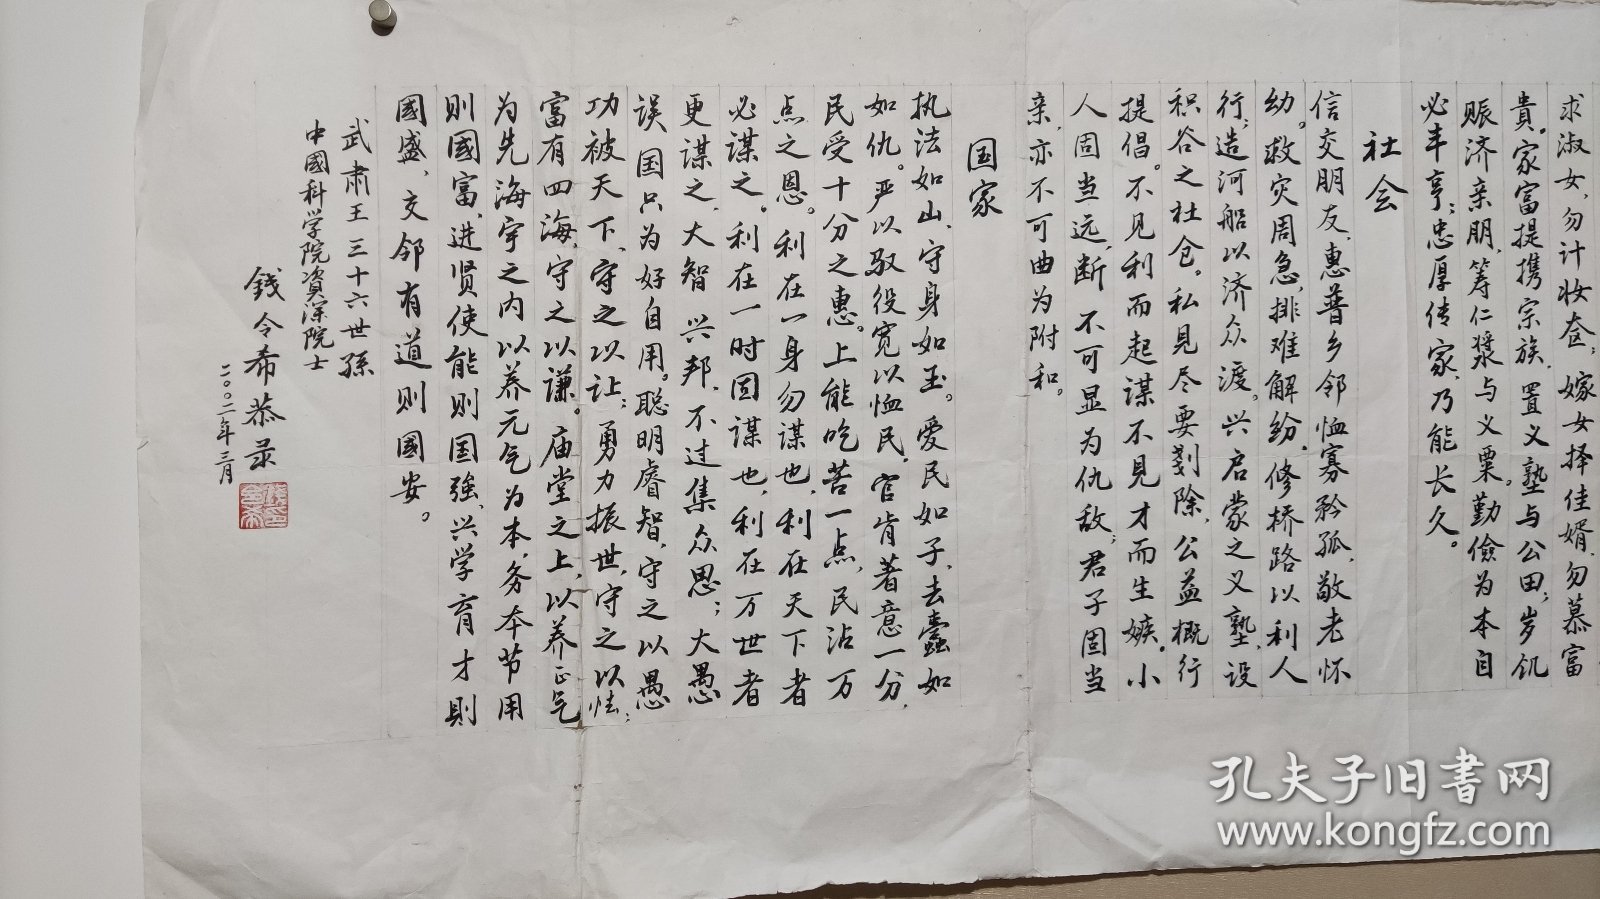 求淑女，勿计妆奁；嫁女择佳婿，勿慕富
貴。家富提携宗族，置义塾与公田；岁饥
赈济亲朋，筹仁漿与义粟。勤儉为本自
必丰亨；忠厚传家，乃能长久。
社会
信交朋友，惠普乡邻恤寡矜孤，敬老怀
幼。救灾周急，排难解纷。修桥路以利人
行；造河船以济众渡。兴启蒙之义塾，设
积谷之社仓。私見尽要剗除，公益概行
提倡。不见利而起谋不見才而生嫉。小
人固当远，断不可显为仇敌；君子固当
亲，亦不可曲为附和。
国家
执法如山，守身如玉。爱民如子，去蠹如
如仇。严以驭役宽以恤民，官肯著意一分，
民受十分之惠。上能吃苦一点，民沾万
点之恩。利在一身勿谋也，利在天下者
必谋之。利在一时固谋也，利在万世者
更谋之，大智兴邦，不过集众思；大愚
误国只为好自用。聪明睿智，守之以愚
功被天下，守之以让；勇力振世，守之以怯；
富有四海，守之以谦。庙堂之上，以养正气
为先海宇之内以养元气为本，务本节用
则國富，进贤使能则国強，兴学育才則
國盛，交邻有道则國安。
武肃王三十六世孫
中國科学院資深院士
錢令希恭录
二〇〇二年三月
孔夫子旧书网
www.kongfz.com